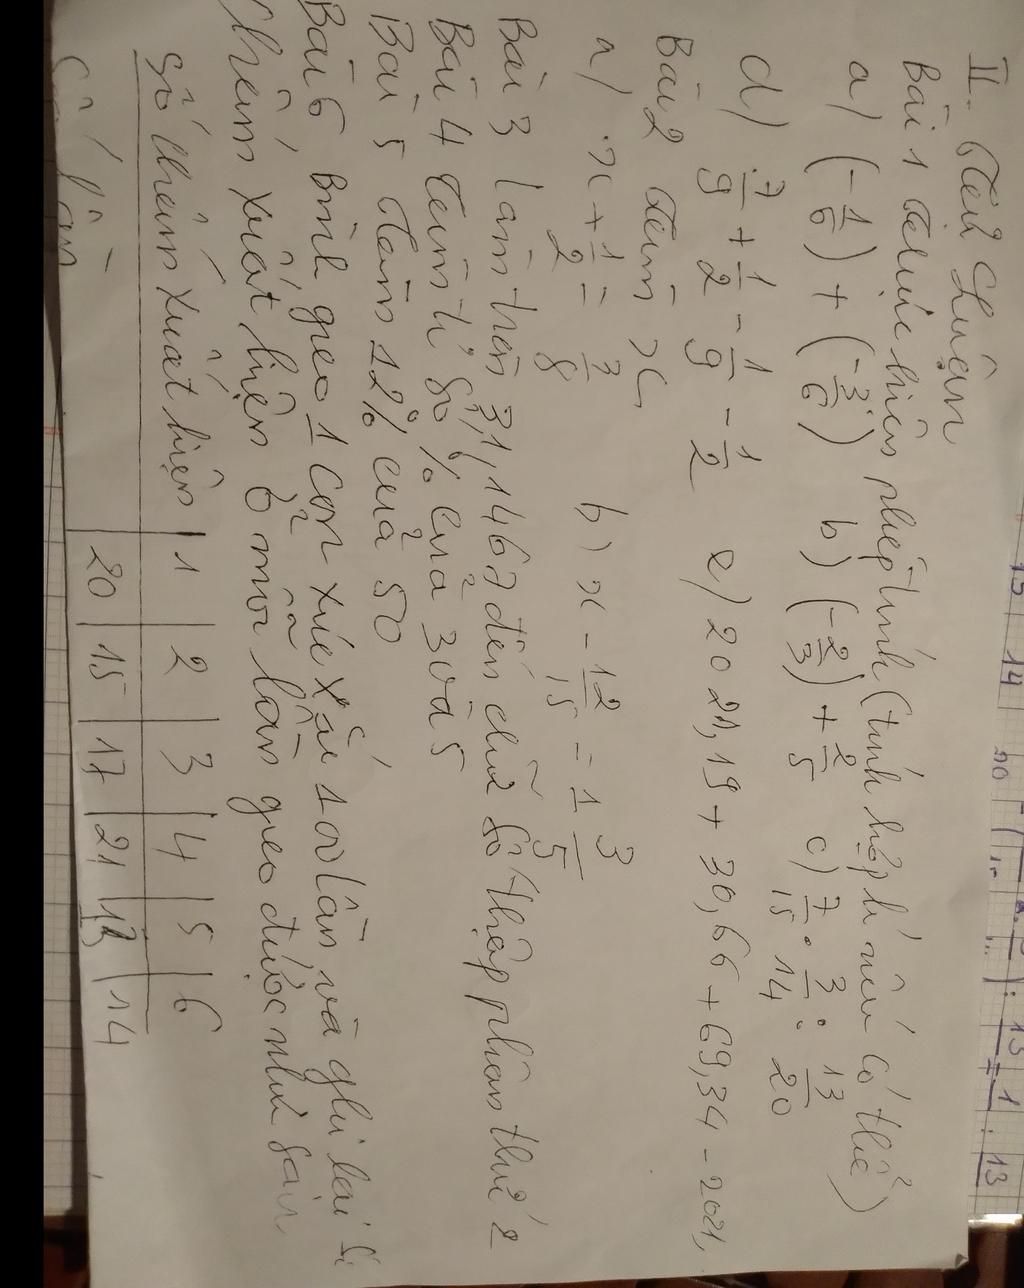 II. Tự Luận
Bài 1 Thực hiện phép tính (tính hợp lí nếu có thể)
a) (-1/6) + (-3/6) b) (-2/3) + 2/5 c) 7/15 . 3/14 : 13/20
d) 7/9 + 1/2 - 1/9 - 1/2 e) 2021,19 + 30,66 + 69,34 - 2021,
Bài 2 Tìm x
a) x + 1/2 = 3/8 b) x - 12/15 = 1 3/5
Bài 3 làm tròn 31,1467 đến chữ số thập phân thứ 2
Bài 4 Tìm tỉ số % của 3 và 5
Bài 5 Tìm 12% của 50
Bài 6 Bình gieo 1 con xúc xắc 100 lần và ghi lại số
chấm xuất hiện ở mỗi lần gieo được như sau
Số chấm xuất hiện 1 2 3 4 5 6
Số lần 20 15 17 21 13 14
15 14 20
13 = 1 : 13